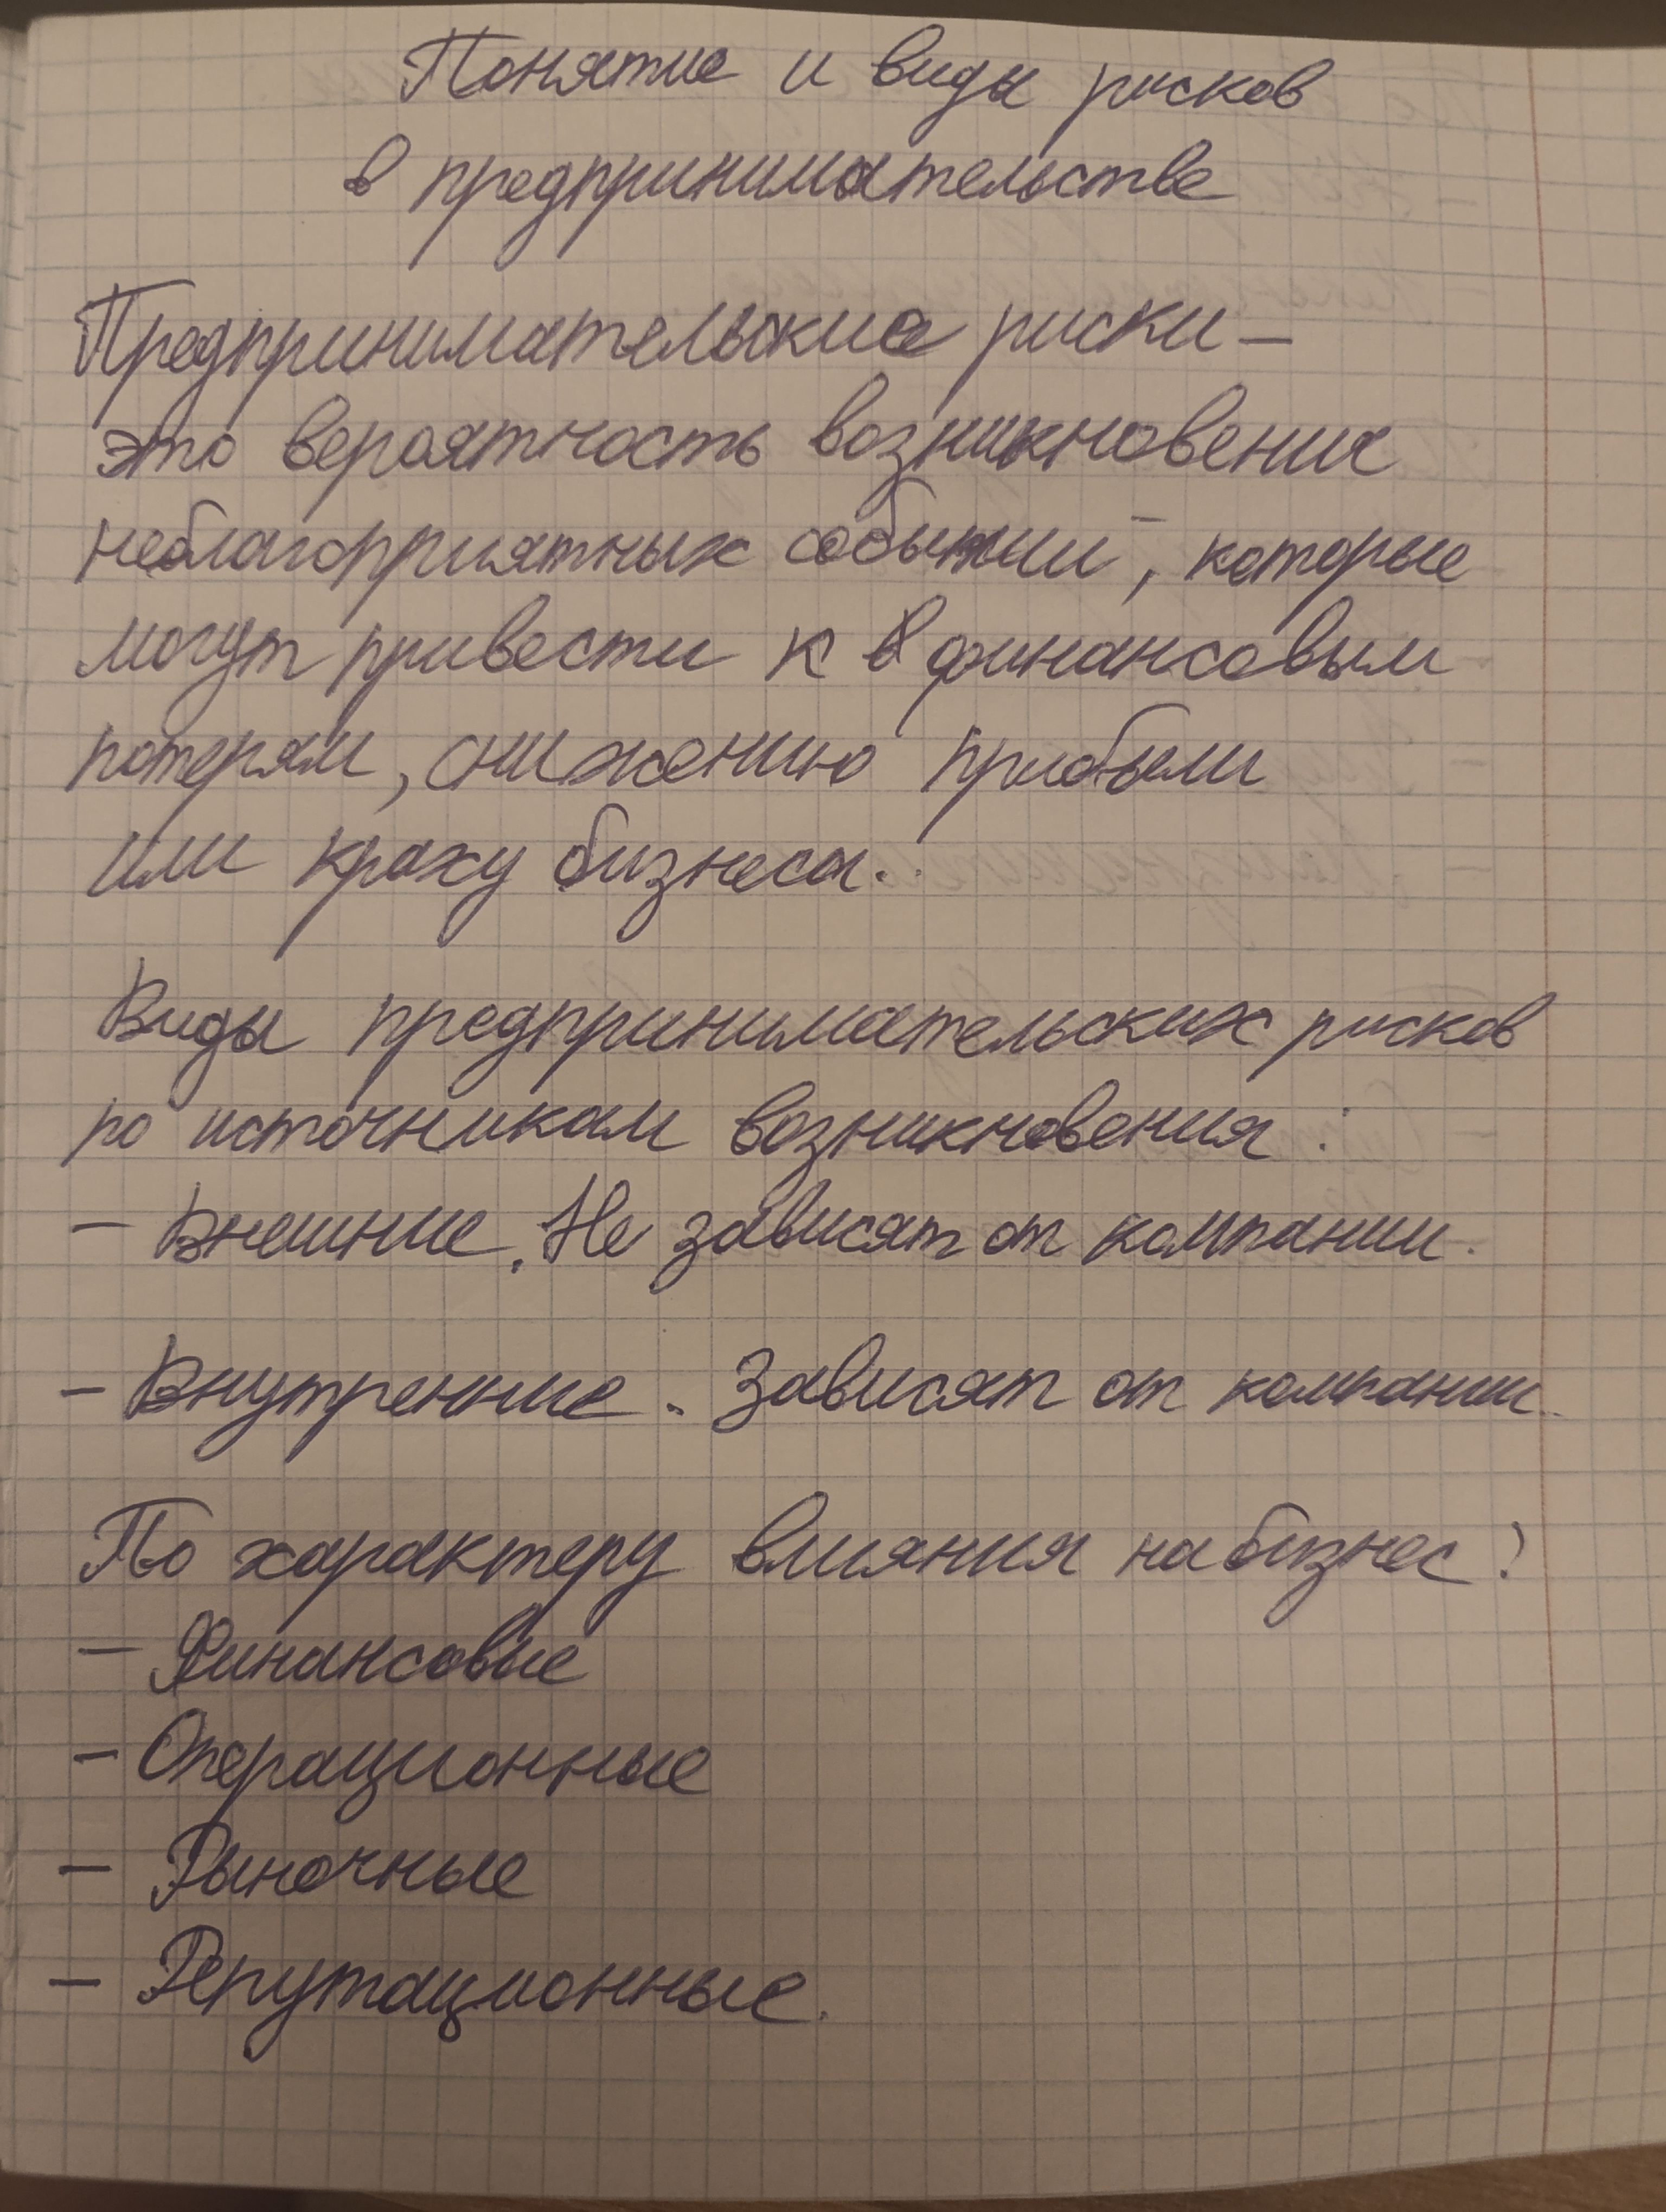 Понятие и виды рисков
в предпринимательстве
Предпринимательские риски –
это вероятность возникновения
неблагоприятных событий, которые
могут привести к финансовым
потерям, снижению прибыли
или краху бизнеса.
Виды предпринимательских рисков
по источникам возникновения:
– Внешние. Не зависят от компании.
– Внутренние. Зависят от компании.
По характеру влияния на бизнес:
– Финансовые
– Операционные
– Рыночные
– Репутационные.